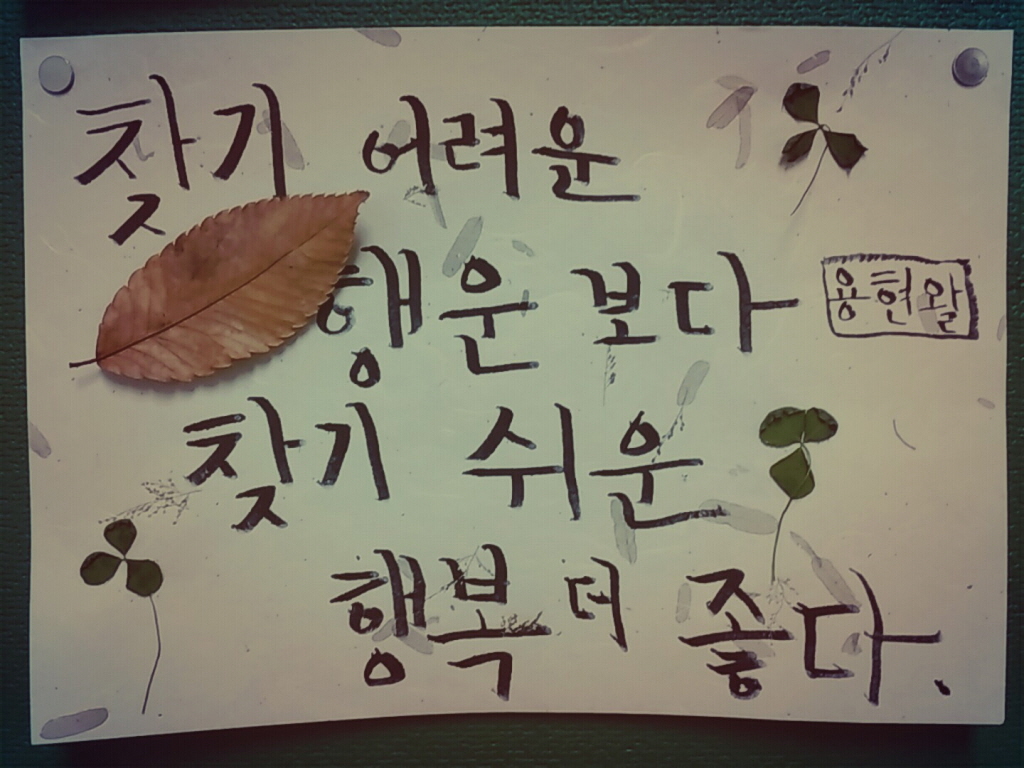 찾기 어려운
행운 보다
용현왈
찾기 쉬운
행복 더 좋다.